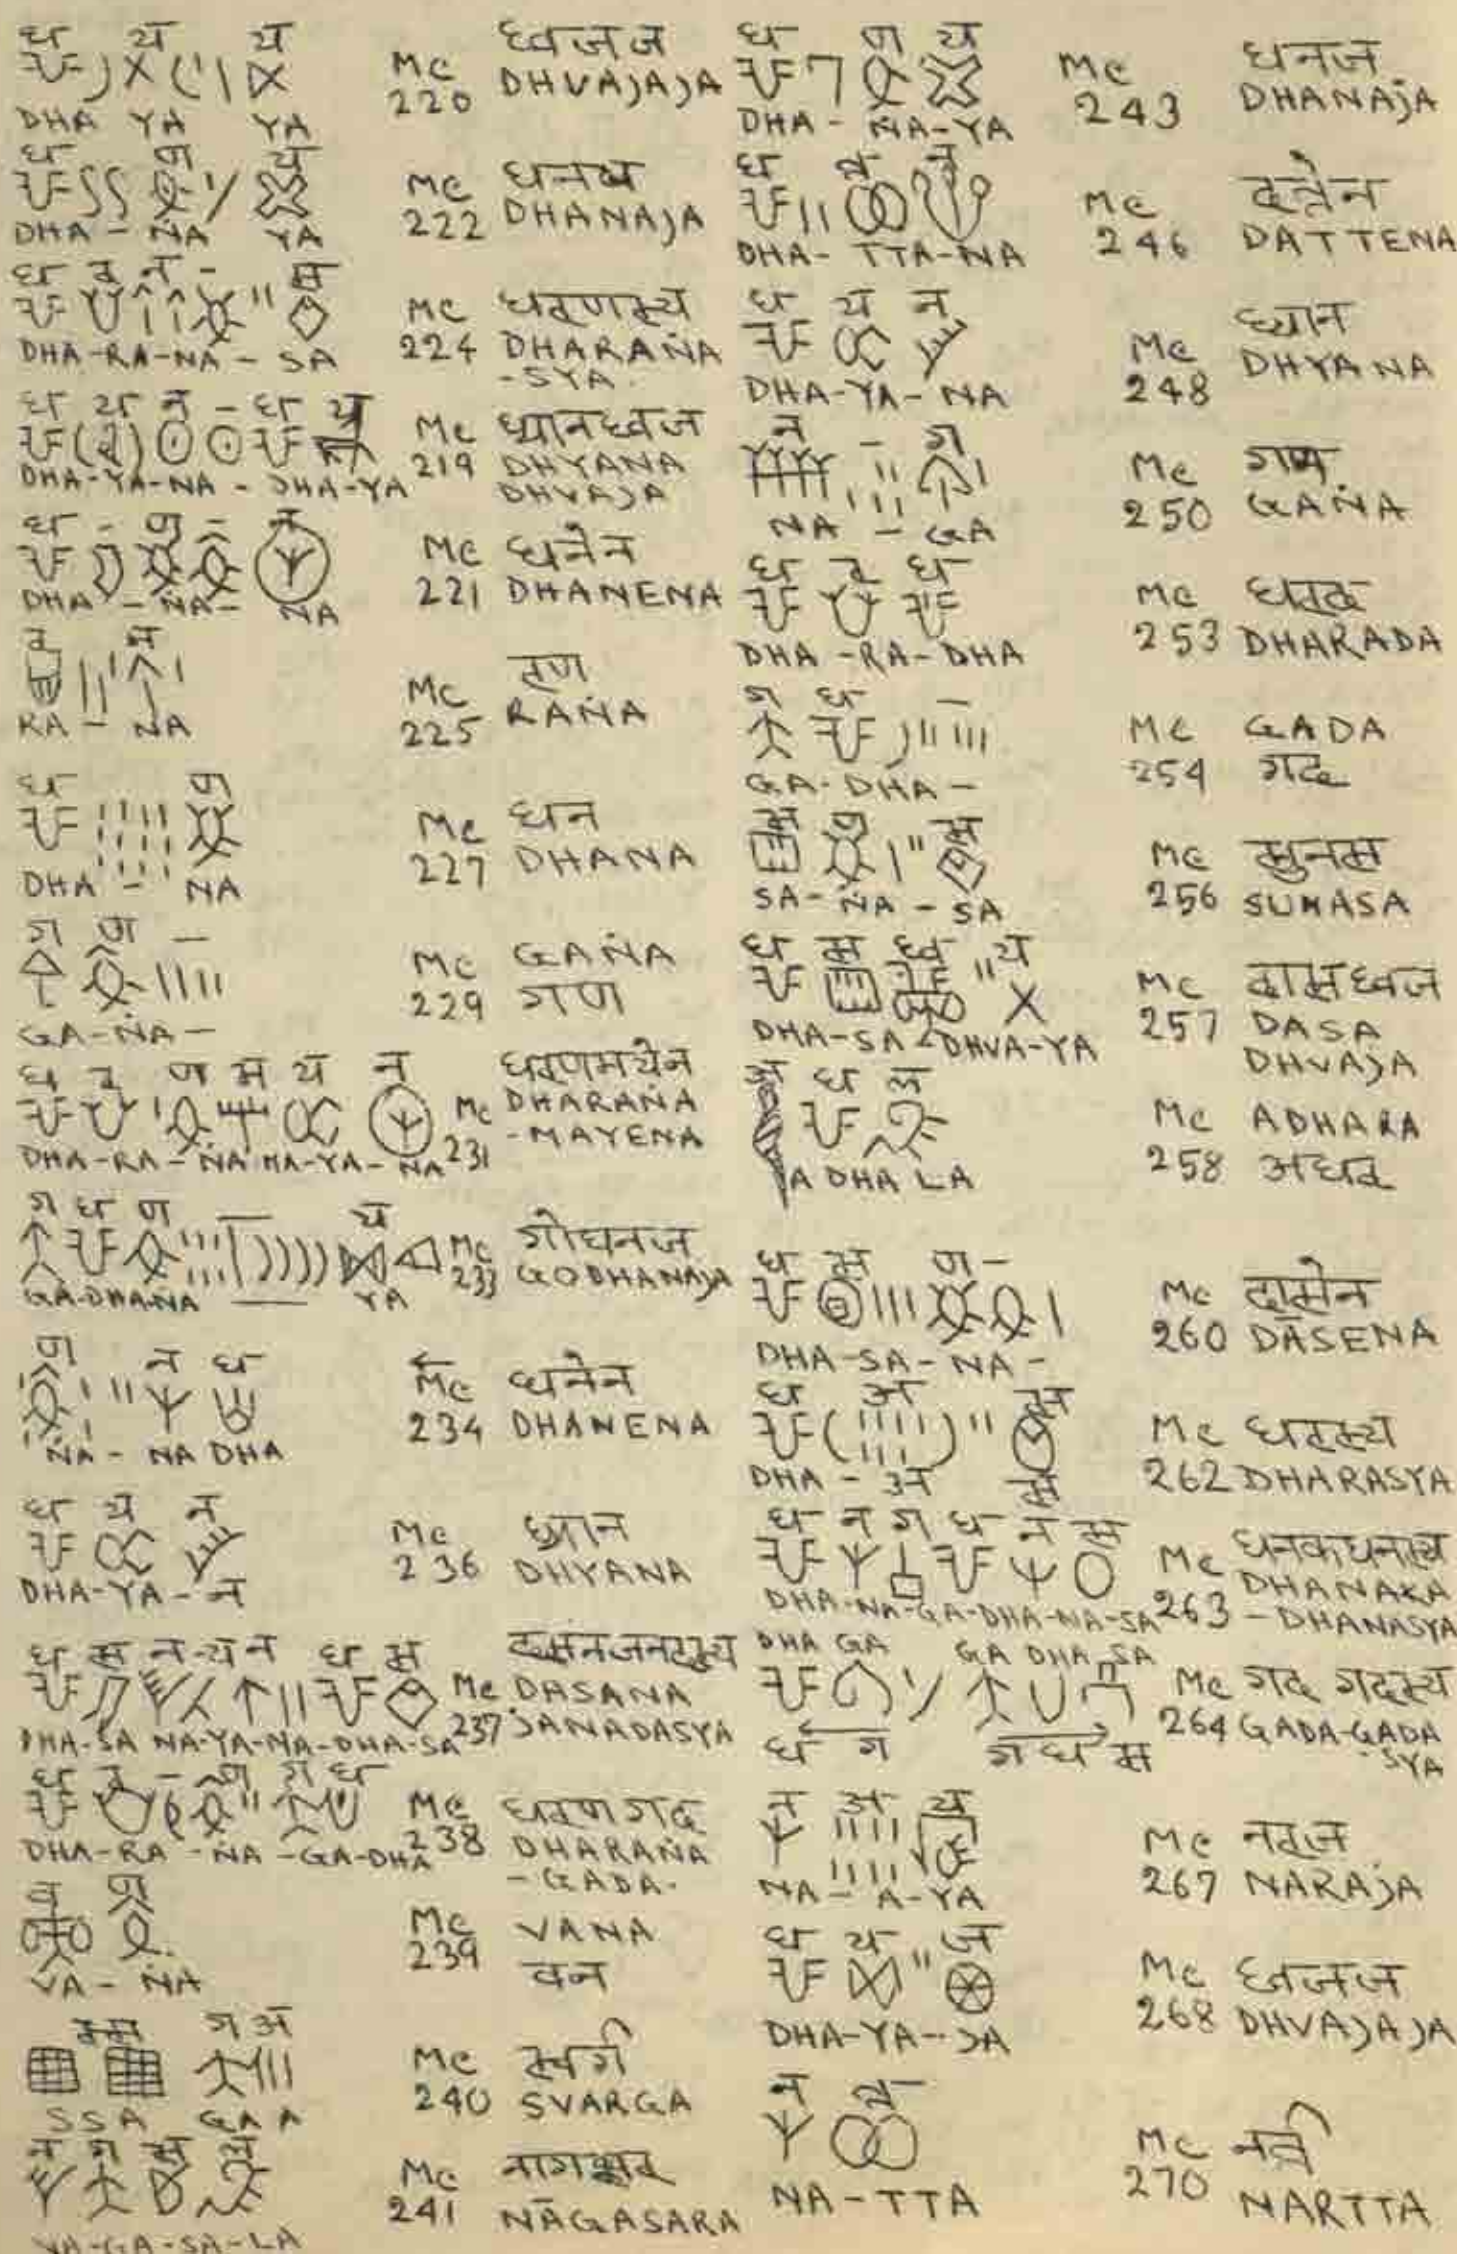 ध य य
DHA YA YA
Mc 220
ध्वजज
DHVAJAJA
ध ण य
DHA - ṄA YA
Mc 222
DHANAJA
ध र न - स
DHA-RA-NA - SA
Mc 224
धरणस्य
DHARAṄA
-SYA.
ध य न - ध य
DHA-YA-NA - DHA-YA
Mc 219
ध्यानध्वज
DHYANA
DHVAJA
ध - ण - न
DHA - NA- NA
Mc 221
धनेन
DHANENA
र न
RA - NA
Mc 225
रण
RAṄA
ध ण
DHA - NA
Mc 227
धन
DHANA
ग ण -
GA-ṄA-
Mc 229
GAṄA
गण
ध र ण म य न
DHA-RA-ṄA MA-YA-NA
Mc 231
धरणमयेन
DHARAṄA
-MAYENA
ग ध ण - य
GA-DHA-NA — YA
Mc 233
गोधनज
GODHANAJA
ण न ध
ṄA - NA DHA
Mc 234
धनेन
DHANENA
ध य न
DHA-YA-न
Mc 236
ध्यान
DHYANA
ध स न-य न ध स
DHA-SA NA-YA-NA-DHA-SA
Mc 237
DASANA
JANADASYA
ध र - ण ग ध
DHA-RA-ṄA-GA-DHA
Mc 238
धरण गद
DHARAṄA
-GADA.
व ण
VA-ṄA
Mc 239
VANA
वन
स्स ग अ
SSA GA A
Mc 240
स्वर्ग
SVARGA
न ग स अ
NA-GA-SA-LA
Mc 241
NĀGASARA
ध ण य
DHA - ṄA-YA
Mc 243
धनज
DHANAJA
DHA- TTA-NA
Mc 246
दत्तेन
DATTENA
ध य न
DHA-YA-NA
Mc 248
ध्यान
DHYANA
न - ग
NA - GA
Mc 250
GAṄA
ध र ध
DHA-RA-DHA
Mc 253
धरद
DHARADA
ग ध -
GA-DHA-
Mc 254
GADA
गद
स ण स
SA-ṄA - SA
Mc 256
सुनस
SUNASA
ध स ध्व य
DHA-SA-DHVA-YA
Mc 257
दासध्वज
DASA
DHVAJA
अ ध अ
A DHA LA
Mc 258
ADHARA
अधर
ध स ण -
DHA-SA-NA-
Mc 260
दासेन
DĀSENA
ध अ स
DHA - अ स
Mc 262
धरस्य
DHARASYA
ध न ग ध न स
DHA-NA-GA-DHA-NA-SA
Mc 263
DHANAKA
-DHANASYA
DHA GA GA DHA SA
ध ग ग ध स
Mc 264
गद गदस्य
GADA-GADA
-SYA
न अ य
NA-A-YA
Mc 267
नरज
NARAJA
ध य ज
DHA-YA-JA
Mc 268
ध्वजज
DHVAJAJA
NA-TTA
Mc 270
NARTTA